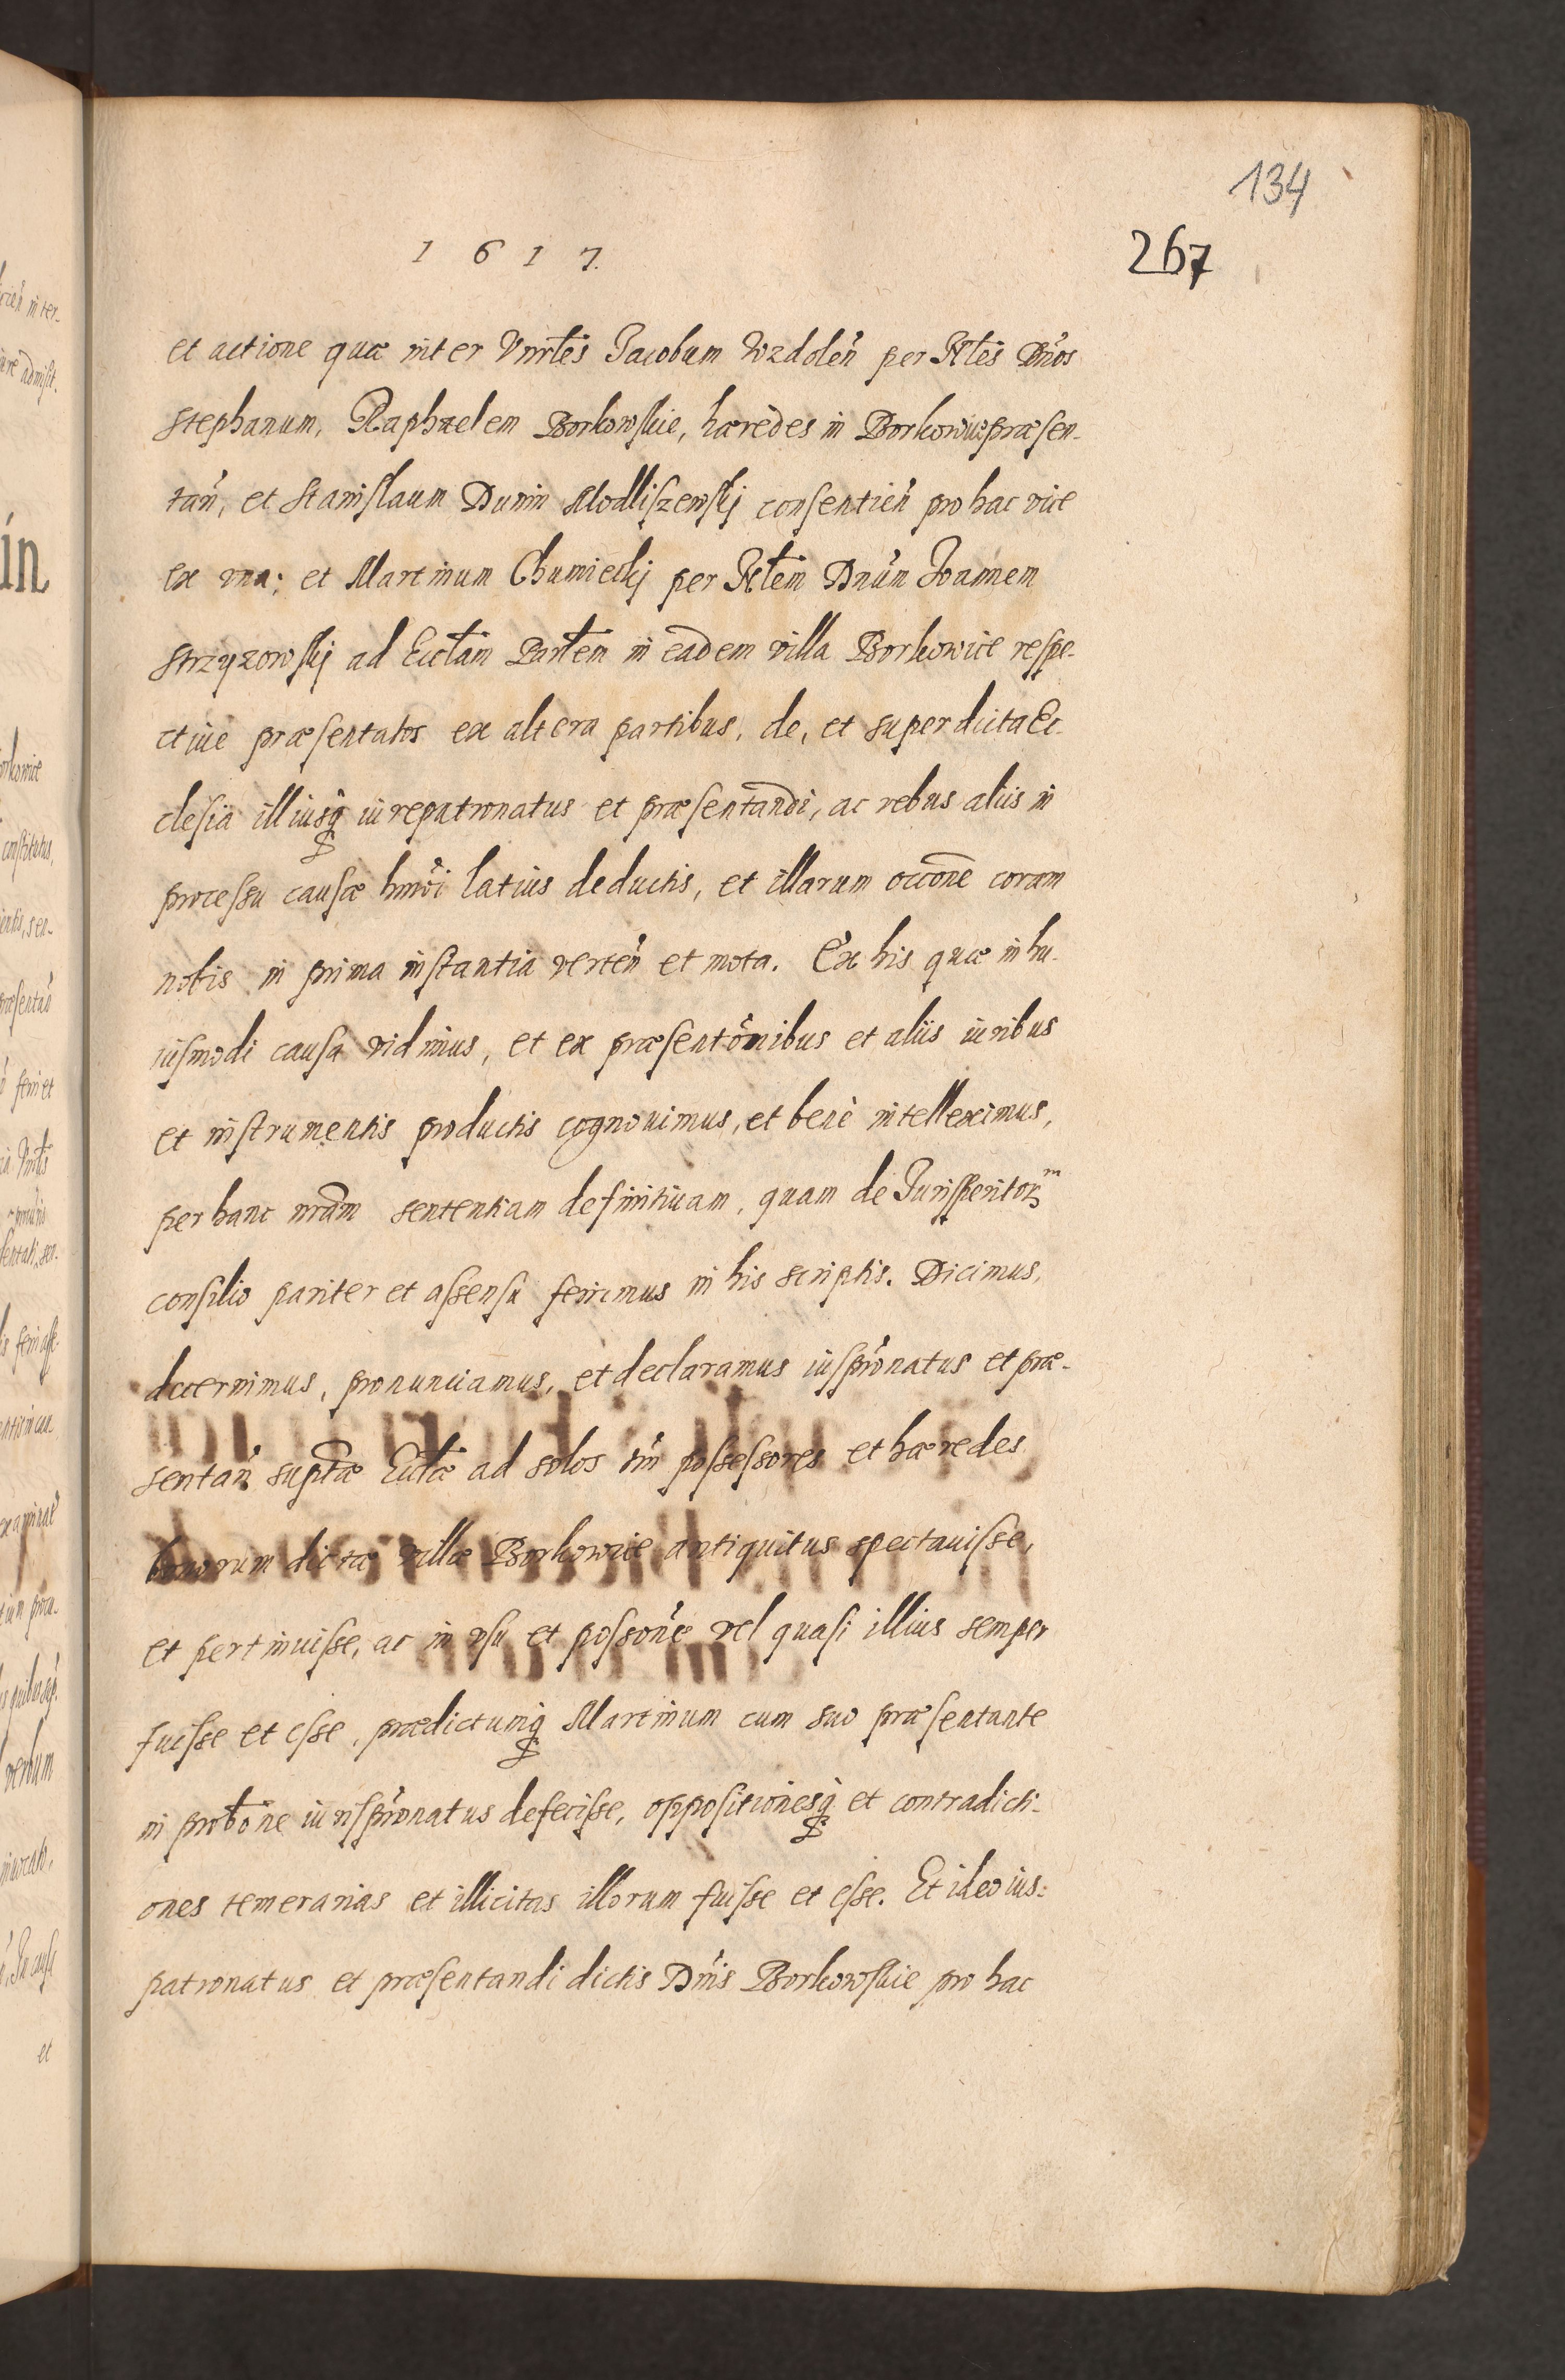 134
1617.
267
et actione quæ inter Vnrt̃es Jacobum Wzdolen̄ per Nt̃es Dn̄os
Stephanum, Raphaelem Borkowskie, hæredes in Borkowice præsen-
tan̄, et Stanislaum Dunin Modliszewskj consentien̄ pro hac vice
ex vna; et Martinum Chumieckj per Nt̃em Dnūm Joannem
Strzyzowskj ad Eccl̃am Part̃em in eadem villa Borkowice respe-
ctiue præsentatos ex altera partibus, de, et super dicta Ec-
clesia illiusq; iurepatronatus et præsentandi, ac rebus aliis in
processu causæ hm̄oi latius deductis, et illarum occōne coram
nobis in prima instantia verten̄ et mota. Ex his quæ in hu-
iusmodi causa vidimus, et ex præsentōnibus et aliis iuribus
et instrumentis productis cognouimus, et benè intelleximus,
per hanc nrām sententiam definitiuam, quam de Jurisperitorm
consilio pariter et assensu ferimus in his scriptis. Dicimus,
decernimus, pronunciamus, et declaramus iusprōnatus et præ-
sentan̄ suptæ Eccl̃æ ad solos tm̄ possessores et hæredes
bonorum dictæ villæ Borkowice antiquitus spectauisse,
et pertinuisse, ac in vsu et possonē vel quasi illius semper
fuisse et esse, prædictumq; Martinum cum suo præsentante
in probōne iurisprōnatus defecisse, oppositionesq; et contradicti-
ones temerarias et illicitas illorum fuisse et esse. Et ideo ius:
patronatus et præsentandi dictis Dn̄is Borkowskie pro hac